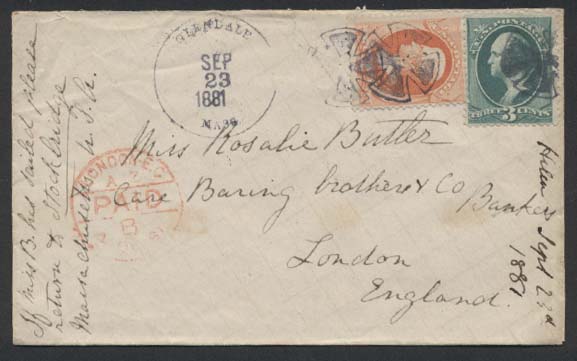 GLENDALE
SEP
23
1881
MASS
U.S. POSTAGE
3
THREE CENTS
LONDON E.C.
PAID
Miss Rosalie Butler
Care Baring brothers & Co
Bankers
London
England.
If Miss B. has sailed please
return to Stockbridge
Massachusetts U.S.A.
Helen Sept 23d
1881